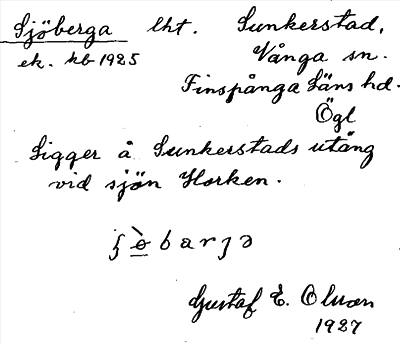 Sjöberga lht. Sunkerstad,
ek. kb 1925 Vånga sn.
Finspånga Läns hd.
Ögl
Ligger å Sunkerstads utäng
vid sjön Horken.
Gustaf E. Olson
1927